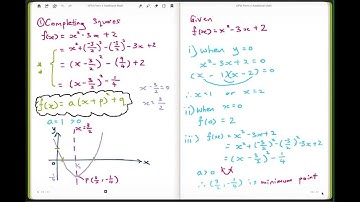 ① Completing Squares
f(x) = x² - 3x + 2
= x² + (-3/2)² - (-3/2)² - 3x + 2
= (x - 3/2)² - (9/4) + 2
= (x - 3/2)² - 1/4
f(x) = a(x + p)² + q
a = 1 > 0
x = 3/2
x - 3/2 = 0
x = 3/2
x
0
P(3/2, -1/4)
Given
f(x) = x² - 3x + 2
i) when y = 0
x² - 3x + 2 = 0
(x - 1)(x - 2) = 0
∴ x = 1 or x = 2
ii) when x = 0
f(0) = 2
iii) f(x) = x² - 3x + 2
= x² + (-3/2)² - (-3/2)² - 3x + 2
= (x - 3/2)² - 1/4
a > 0
is minimum point